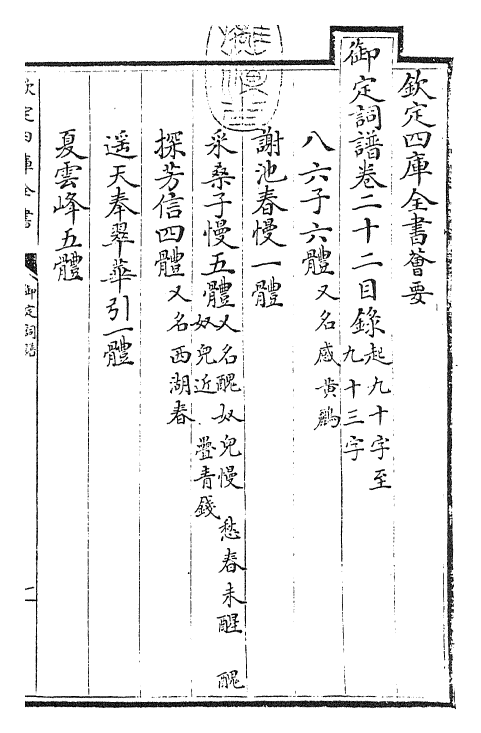 欽定四庫全書薈要
御定詞譜卷二十二目錄起九十字至
九十三字
八六子六體又名感黃鸝
謝池春慢一體
采桑子慢五體又名醜奴兒慢 愁春未醒 醜
奴兒近 疊青錢
探芳信四體又名西湖春
遥天奉翠華引一體
夏雲峰五體
欽定四庫全書 御定詞譜